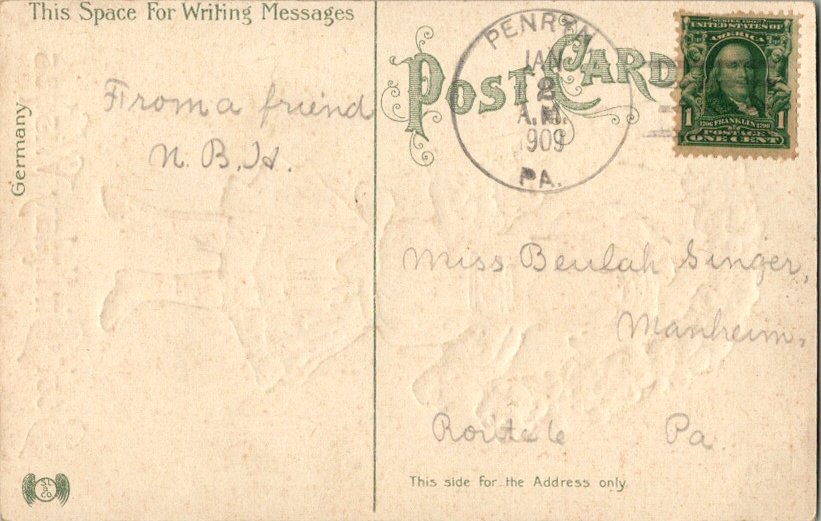 This Space For Writing Messages
Germany
From a friend
N. B. H.
POST CARD
PENRYN
JAN
2
A.M.
1909
PA.
SERIES 1902
UNITED STATES OF
AMERICA
1 1
1706 FRANKLIN 1790
POSTAGE
ONE CENT
Miss Beulah Ginger,
Manheim,
Route 6 Pa.
This side for the Address only.